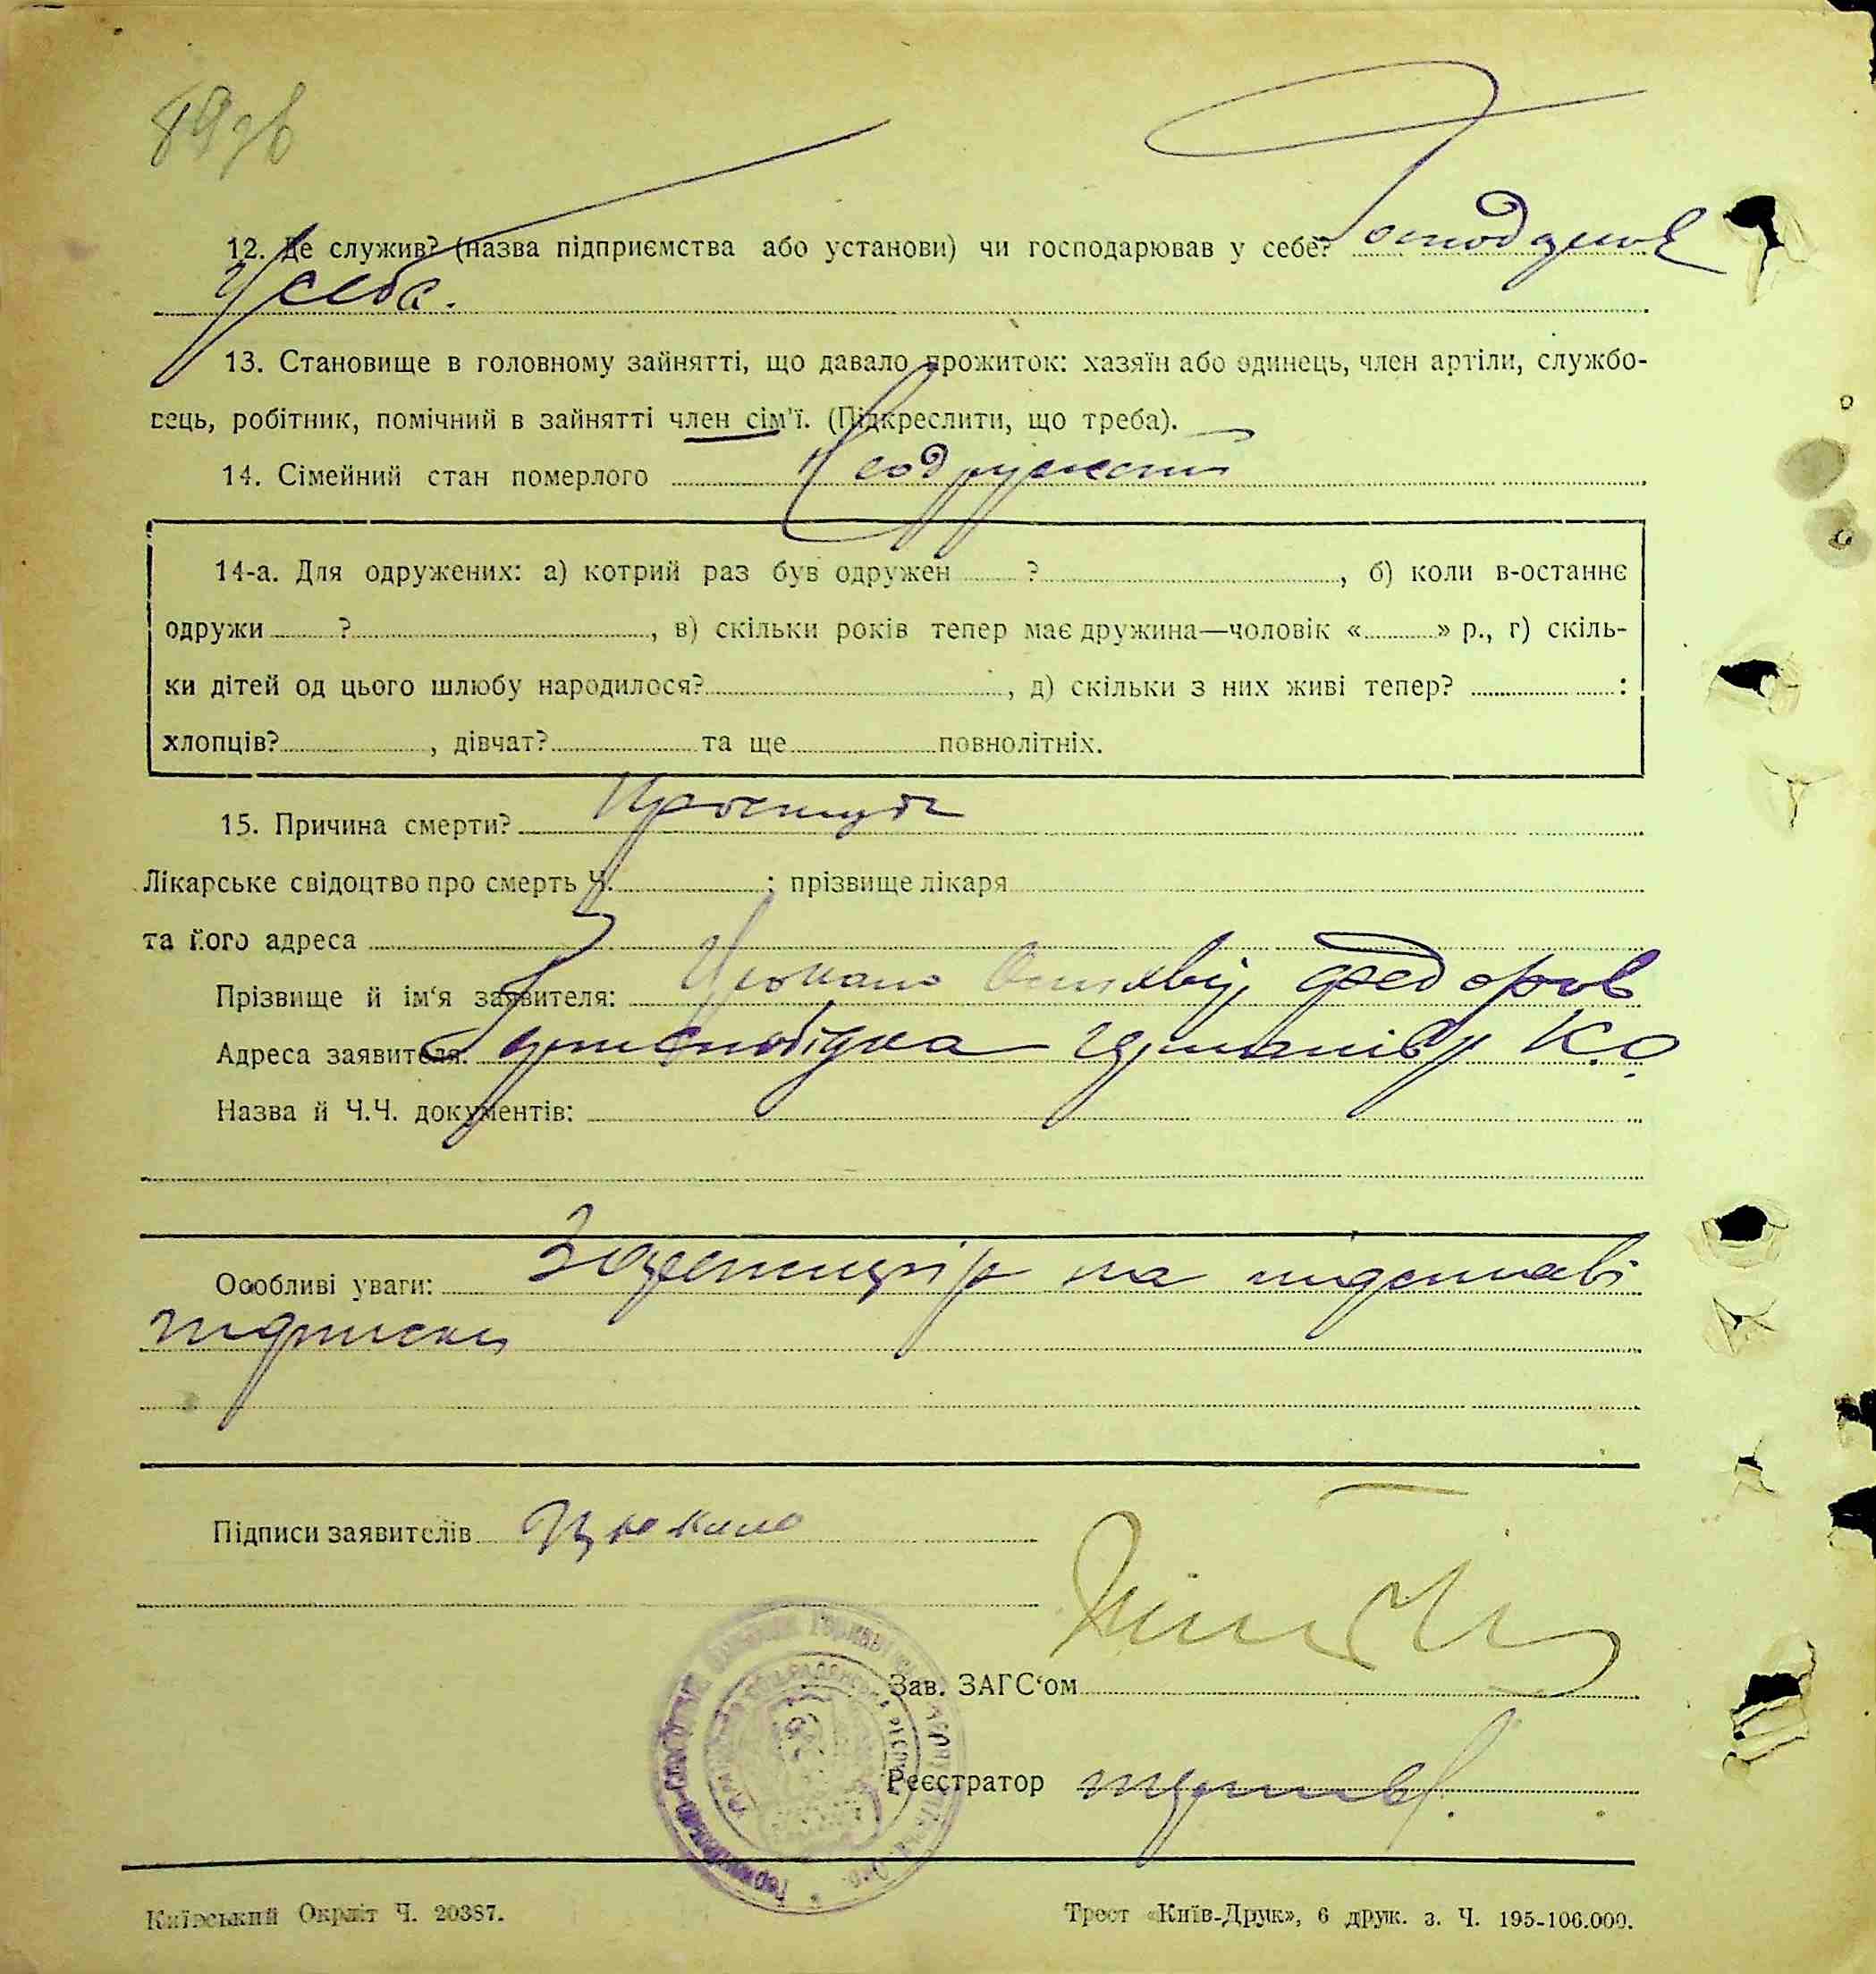 12. Де служив? (назва підприємства або установи) чи господарював у себе? Господарюв
У себе.
13. Становище в головному зайнятті, що давало прожиток: хазяїн або одинець, член артіли, службо-
вець, робітник, помічний в зайнятті член сім'ї. (Підкреслити, що треба).
14. Сімейний стан померлого
14-а. Для одружених: а) котрий раз був одружен ? , б) коли в-останнє
одружи ? , в) скільки років тепер має дружина—чоловік « » р., г) скіль-
ки дітей од цього шлюбу народилося? , д) скільки з них живі тепер? :
хлопців? , дівчат? та ще повнолітніх.
15. Причина смерти? Простуда
Лікарське свідоцтво про смерть Ч. ; прізвище лікаря
та його адреса
Прізвище й ім'я заявителя: Федоров
Адреса заявителя: К.О.
Назва й Ч.Ч. документів:
Особливі уваги: на підставі
підписки
Підписи заявителів
Зав. ЗАГС'ом
Реєстратор
Київський Окрліт Ч. 20387.
Трест «Київ-Друк», 6 друк. з. Ч. 195-106.000.